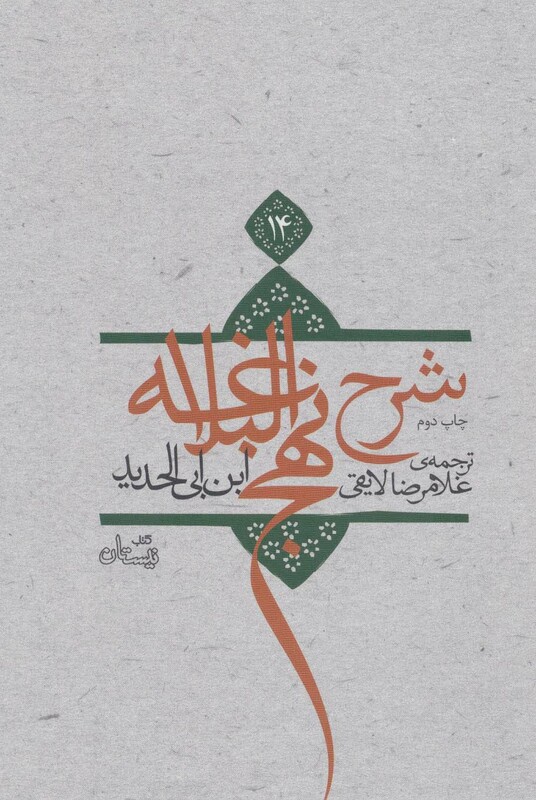 ۱۴
شرح نهج البلاغه
چاپ دوم
ابن ابی الحدید
ترجمه‌ی
غلامرضا لایقی
کتاب
نیستان